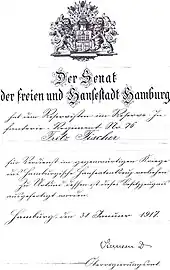 Der Senat
der freien und Hansestadt Hamburg
hat dem Reservisten im Reserve In-
fanterie-Regiment No. 76
Fritz Fischer
für Verdienst im gegenwärtigen Kriege
das Hamburgische Hanseatenkreuz verliehen.
Zu Urkund dessen ist diese Besitzzeugnis
ausgefertigt worden.
Hamburg, den 31 Januar 1917.